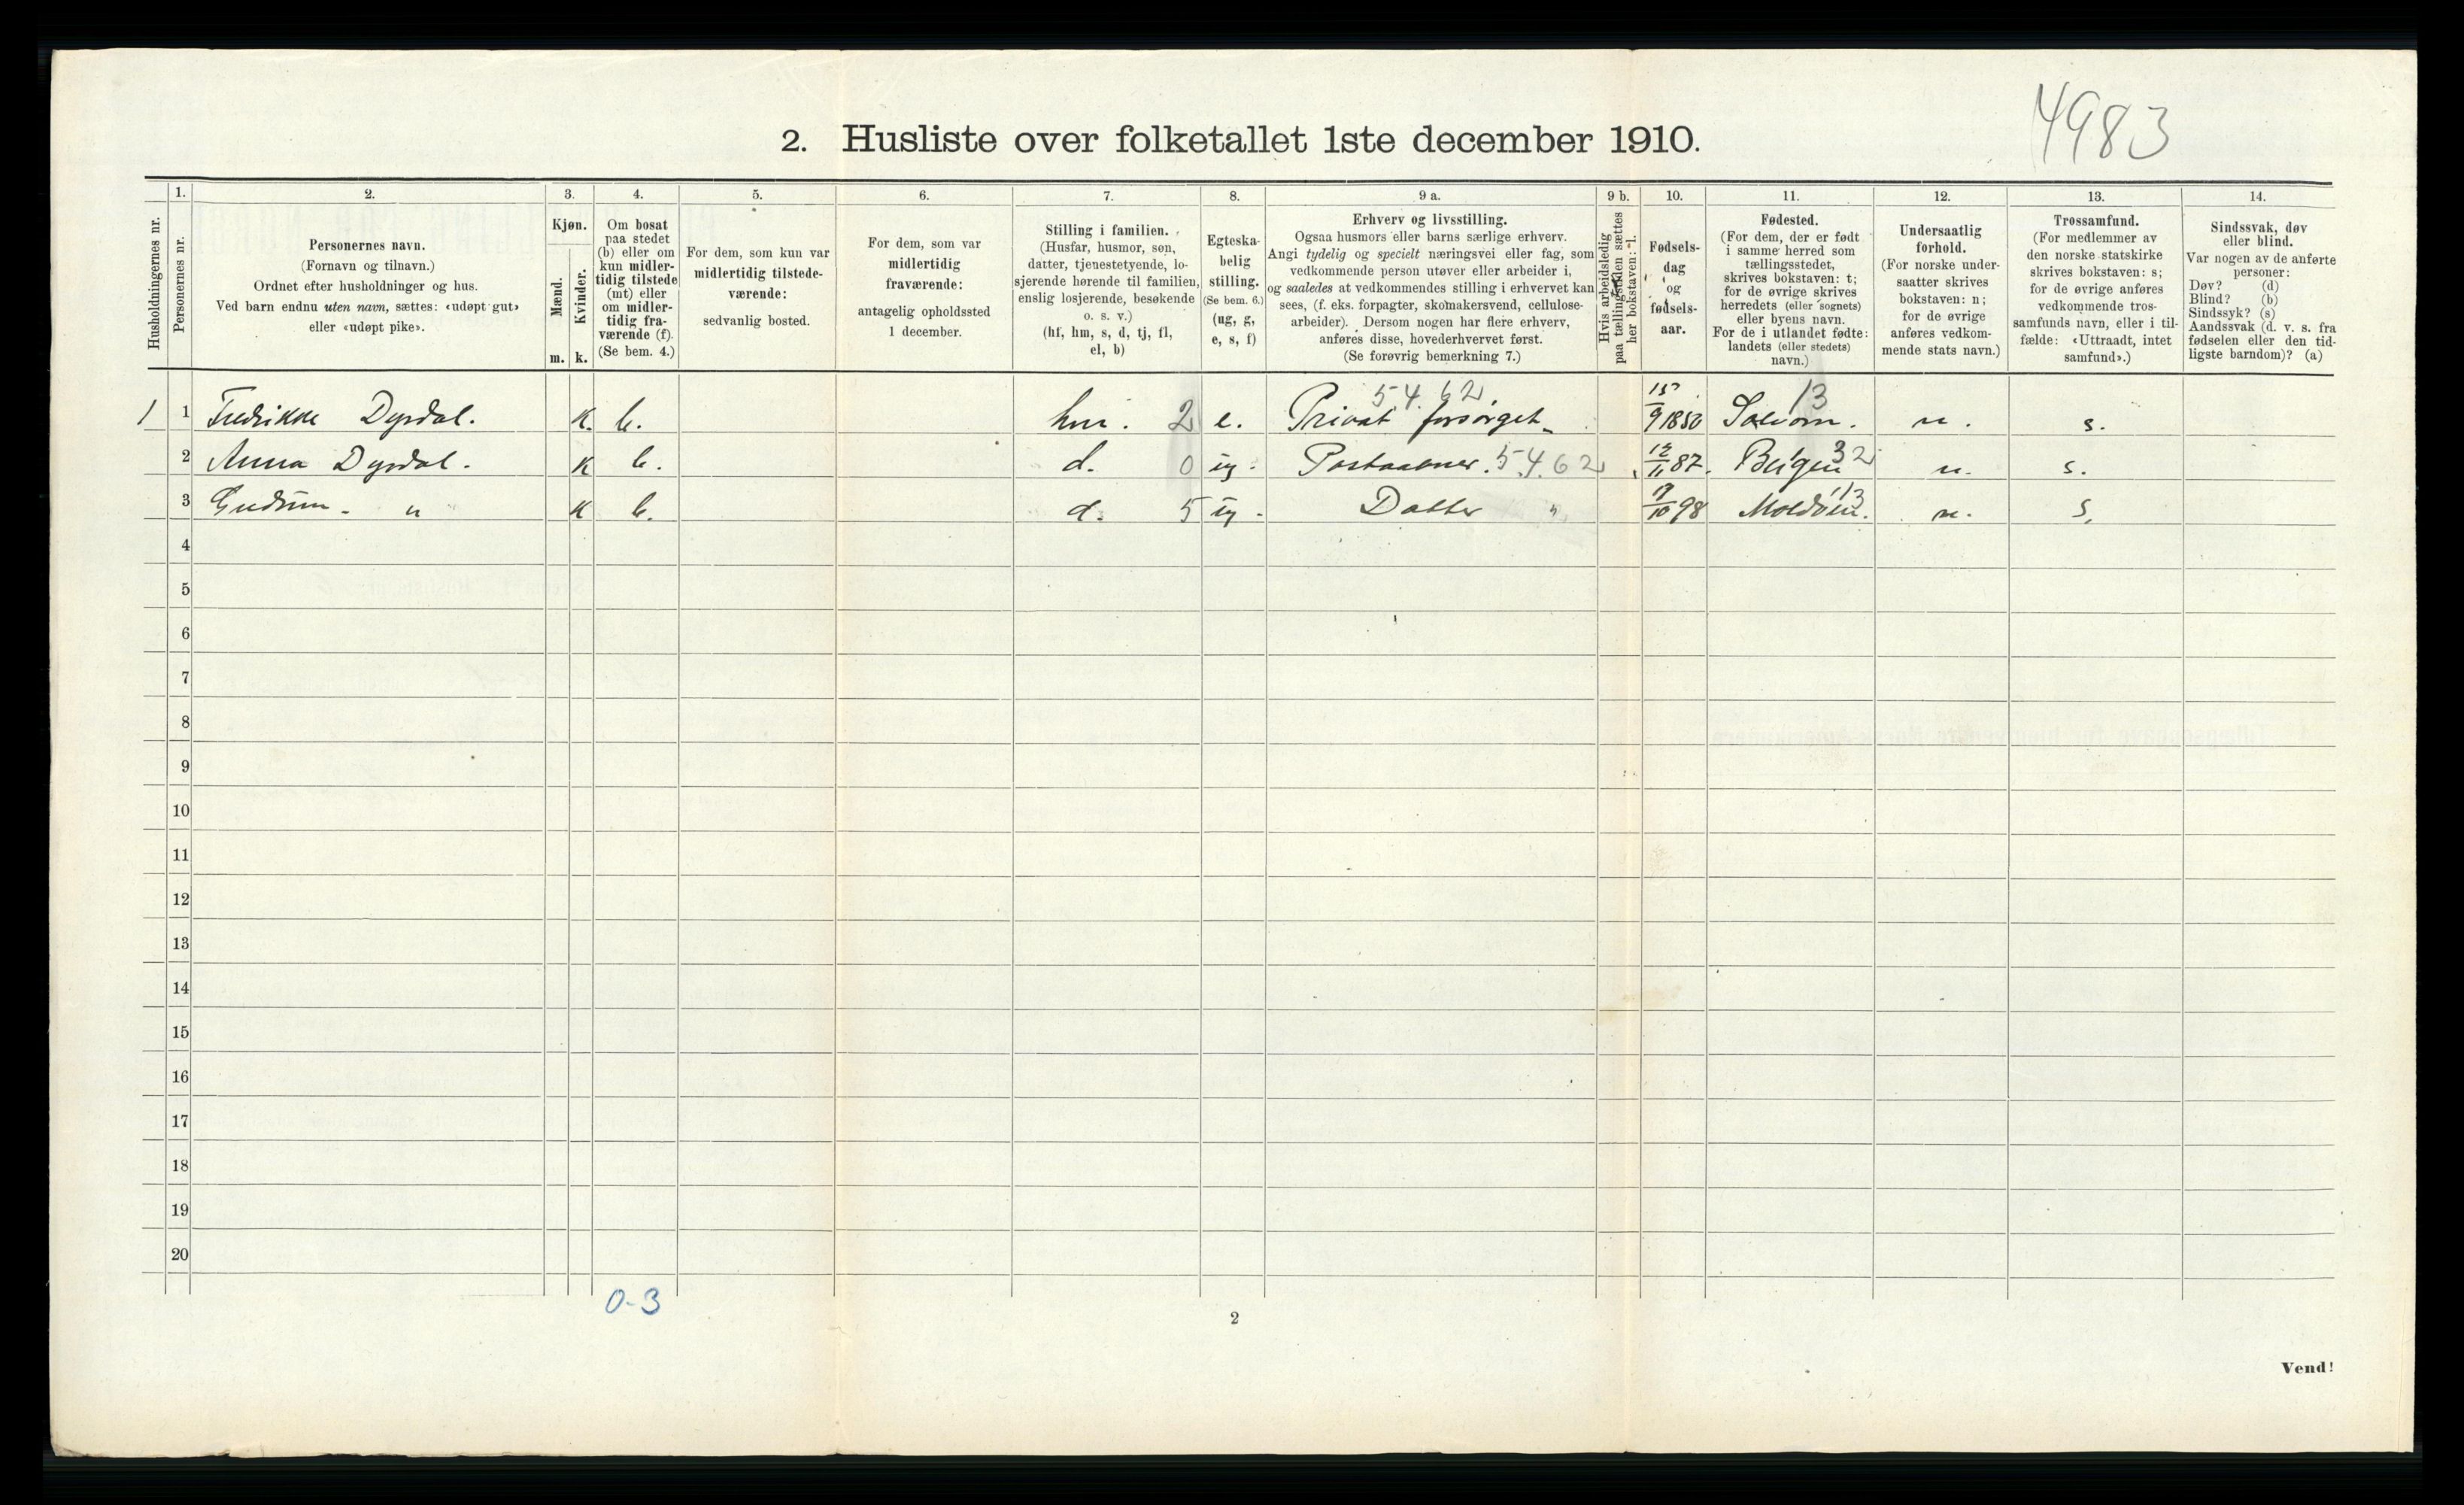 4983
2. Husliste over folketallet 1ste december 1910.
Husholdningernes nr.
1.
Personernes nr.
2.
Personernes navn.
(Fornavn og tilnavn.)
Ordnet efter husholdninger og hus.
Ved barn endnu uten navn, sættes: «udøpt gut»
eller «udøpt pike».
3.
Kjøn.
Mænd.
Kvinder.
m. k.
4.
Om bosat
paa stedet
(b) eller om
kun midler-
tidig tilstede
(mt) eller
om midler-
tidig fra-
værende (f).
(Se bem. 4.)
5.
For dem, som kun var
midlertidig tilstede-
værende:
sedvanlig bosted.
6.
For dem, som var
midlertidig
fraværende:
antagelig opholdssted
1 december.
7.
Stilling i familien.
(Husfar, husmor, søn,
datter, tjenestetyende, lo-
sjerende hørende til familien,
enslig losjerende, besøkende
o. s. v.)
(hf, hm, s, d, tj, fl,
el, b)
8.
Egteska-
belig
stilling.
(Se bem. 6.)
(ug, g,
e, s, f)
9 a.
Erhverv og livsstilling.
Ogsaa husmors eller barns særlige erhverv.
Angi tydelig og specielt næringsvei eller fag, som
vedkommende person utøver eller arbeider i,
og saaledes at vedkommendes stilling i erhvervet kan
sees, (f. eks. forpagter, skomakersvend, cellulose-
arbeider). Dersom nogen har flere erhverv,
anføres disse, hovederhvervet først.
(Se forøvrig bemerkning 7.)
9 b.
Hvis arbeidsledig
paa tællingstiden sættes
her bokstaven: l.
10.
Fødsels-
dag
og
fødsels-
aar.
11.
Fødested.
(For dem, der er født
i samme herred som
tællingsstedet,
skrives bokstaven: t;
for de øvrige skrives
herredets (eller sognets)
eller byens navn.
For de i utlandet fødte:
landets (eller stedets)
navn.)
12.
Undersaatlig
forhold.
(For norske under-
saatter skrives
bokstaven: n;
for de øvrige
anføres vedkom-
mende stats navn.)
13.
Trossamfund.
(For medlemmer av
den norske statskirke
skrives bokstaven: s;
for de øvrige anføres
vedkommende tros-
samfunds navn, eller i til-
fælde: «Uttraadt, intet
samfund».)
14.
Sindssvak, døv
eller blind.
Var nogen av de anførte
personer:
Døv? (d)
Blind? (b)
Sindssyk? (s)
Aandssvak (d. v. s. fra
fødselen eller den tid-
ligste barndom)? (a)
5462 13
1 1 Fredrikke Dysdal. k. b. hm. 2 e. Privat forsørget. 15/9 1850 n. s.
2 Anna Dysdal. k b. d. 0 ug. Postaabner. 5462 12/11 87. Bergen 32 n. s.
3 Gudrun. " k b. d. 5 ug. Datter " 10 98 113 n. s.
4
5
6
7
8
9
10
11
12
13
14
15
16
17
18
19
20
0-3
2
Vend!